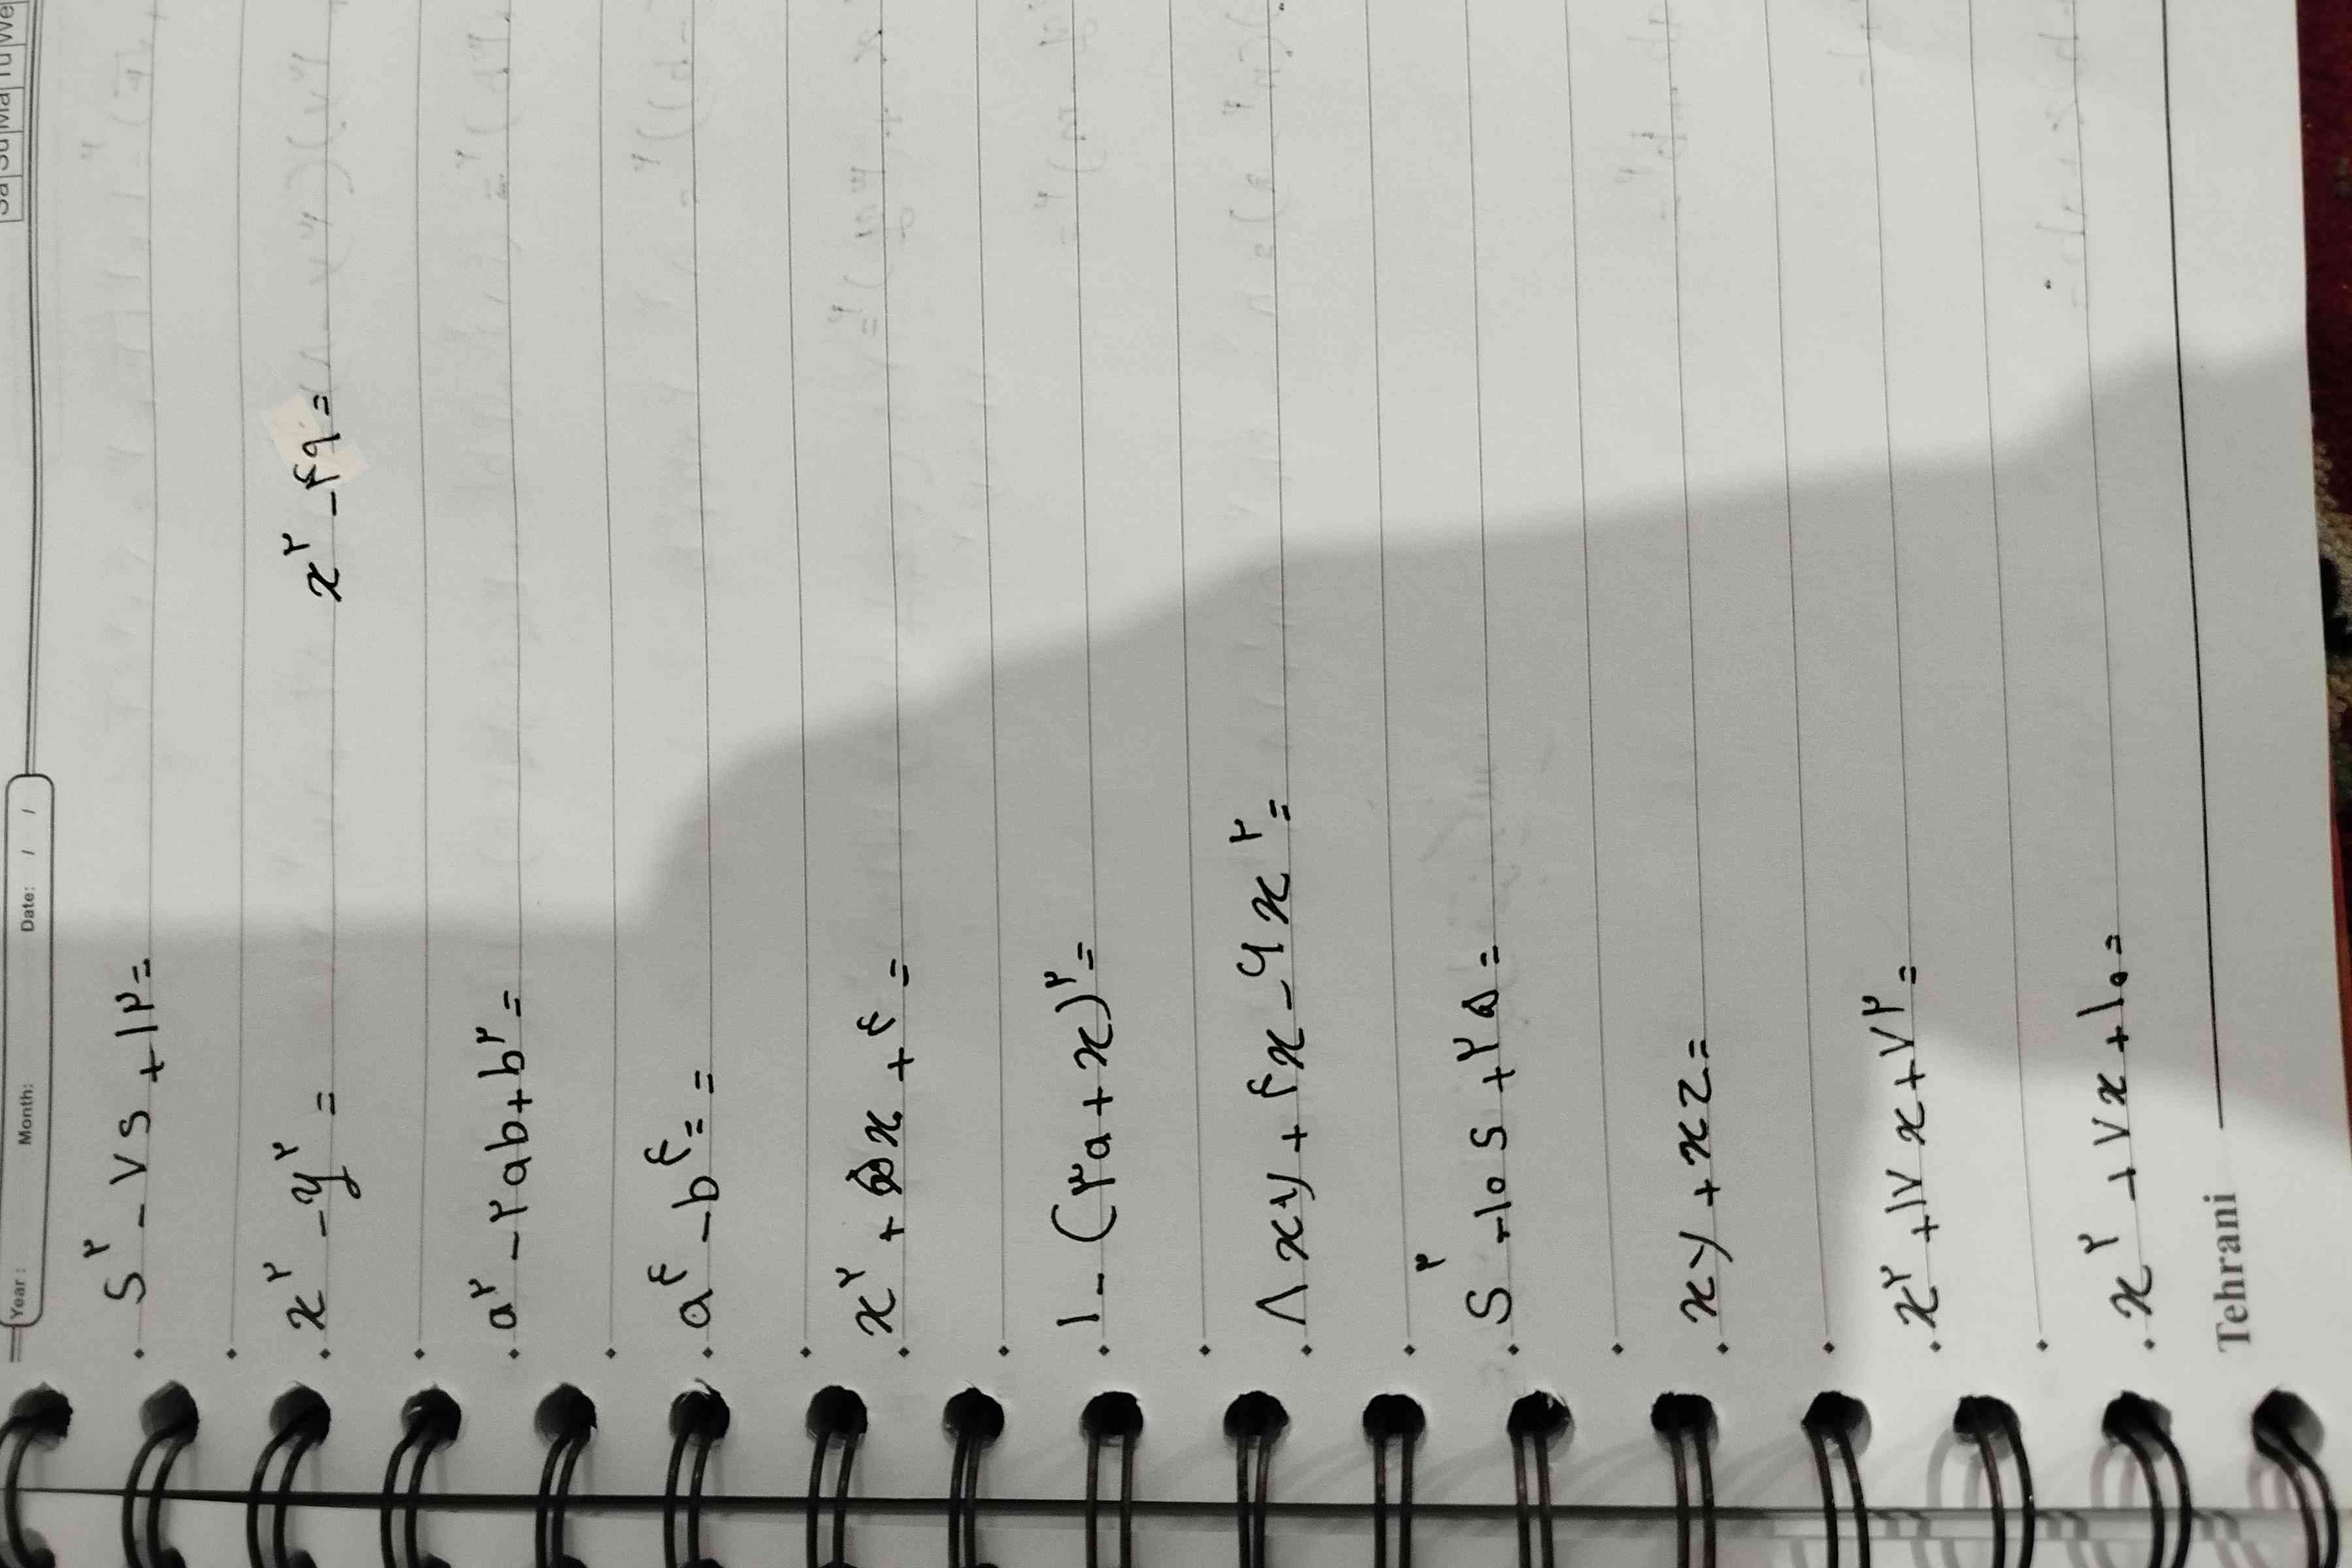 Year: Month: Date: / / Sa Su Ma Tu We
s^۲ - ۷s + ۱۲ =
x^۲ - y^۲ = x^۲ - ۴۹ =
a^۲ - ۲ab + b^۲ =
a^۴ - b^۴ = =
x^۲ + ۵x + ۴ =
۱ - (۳a + x)^۲ =
۸xy + ۴x - ۶x^۲ =
s^۲ - ۱۰s + ۲۵ =
xy + xz =
x^۲ + ۱۷x + ۷۲ =
x^۲ + ۷x + ۱۰ =
Tehrani